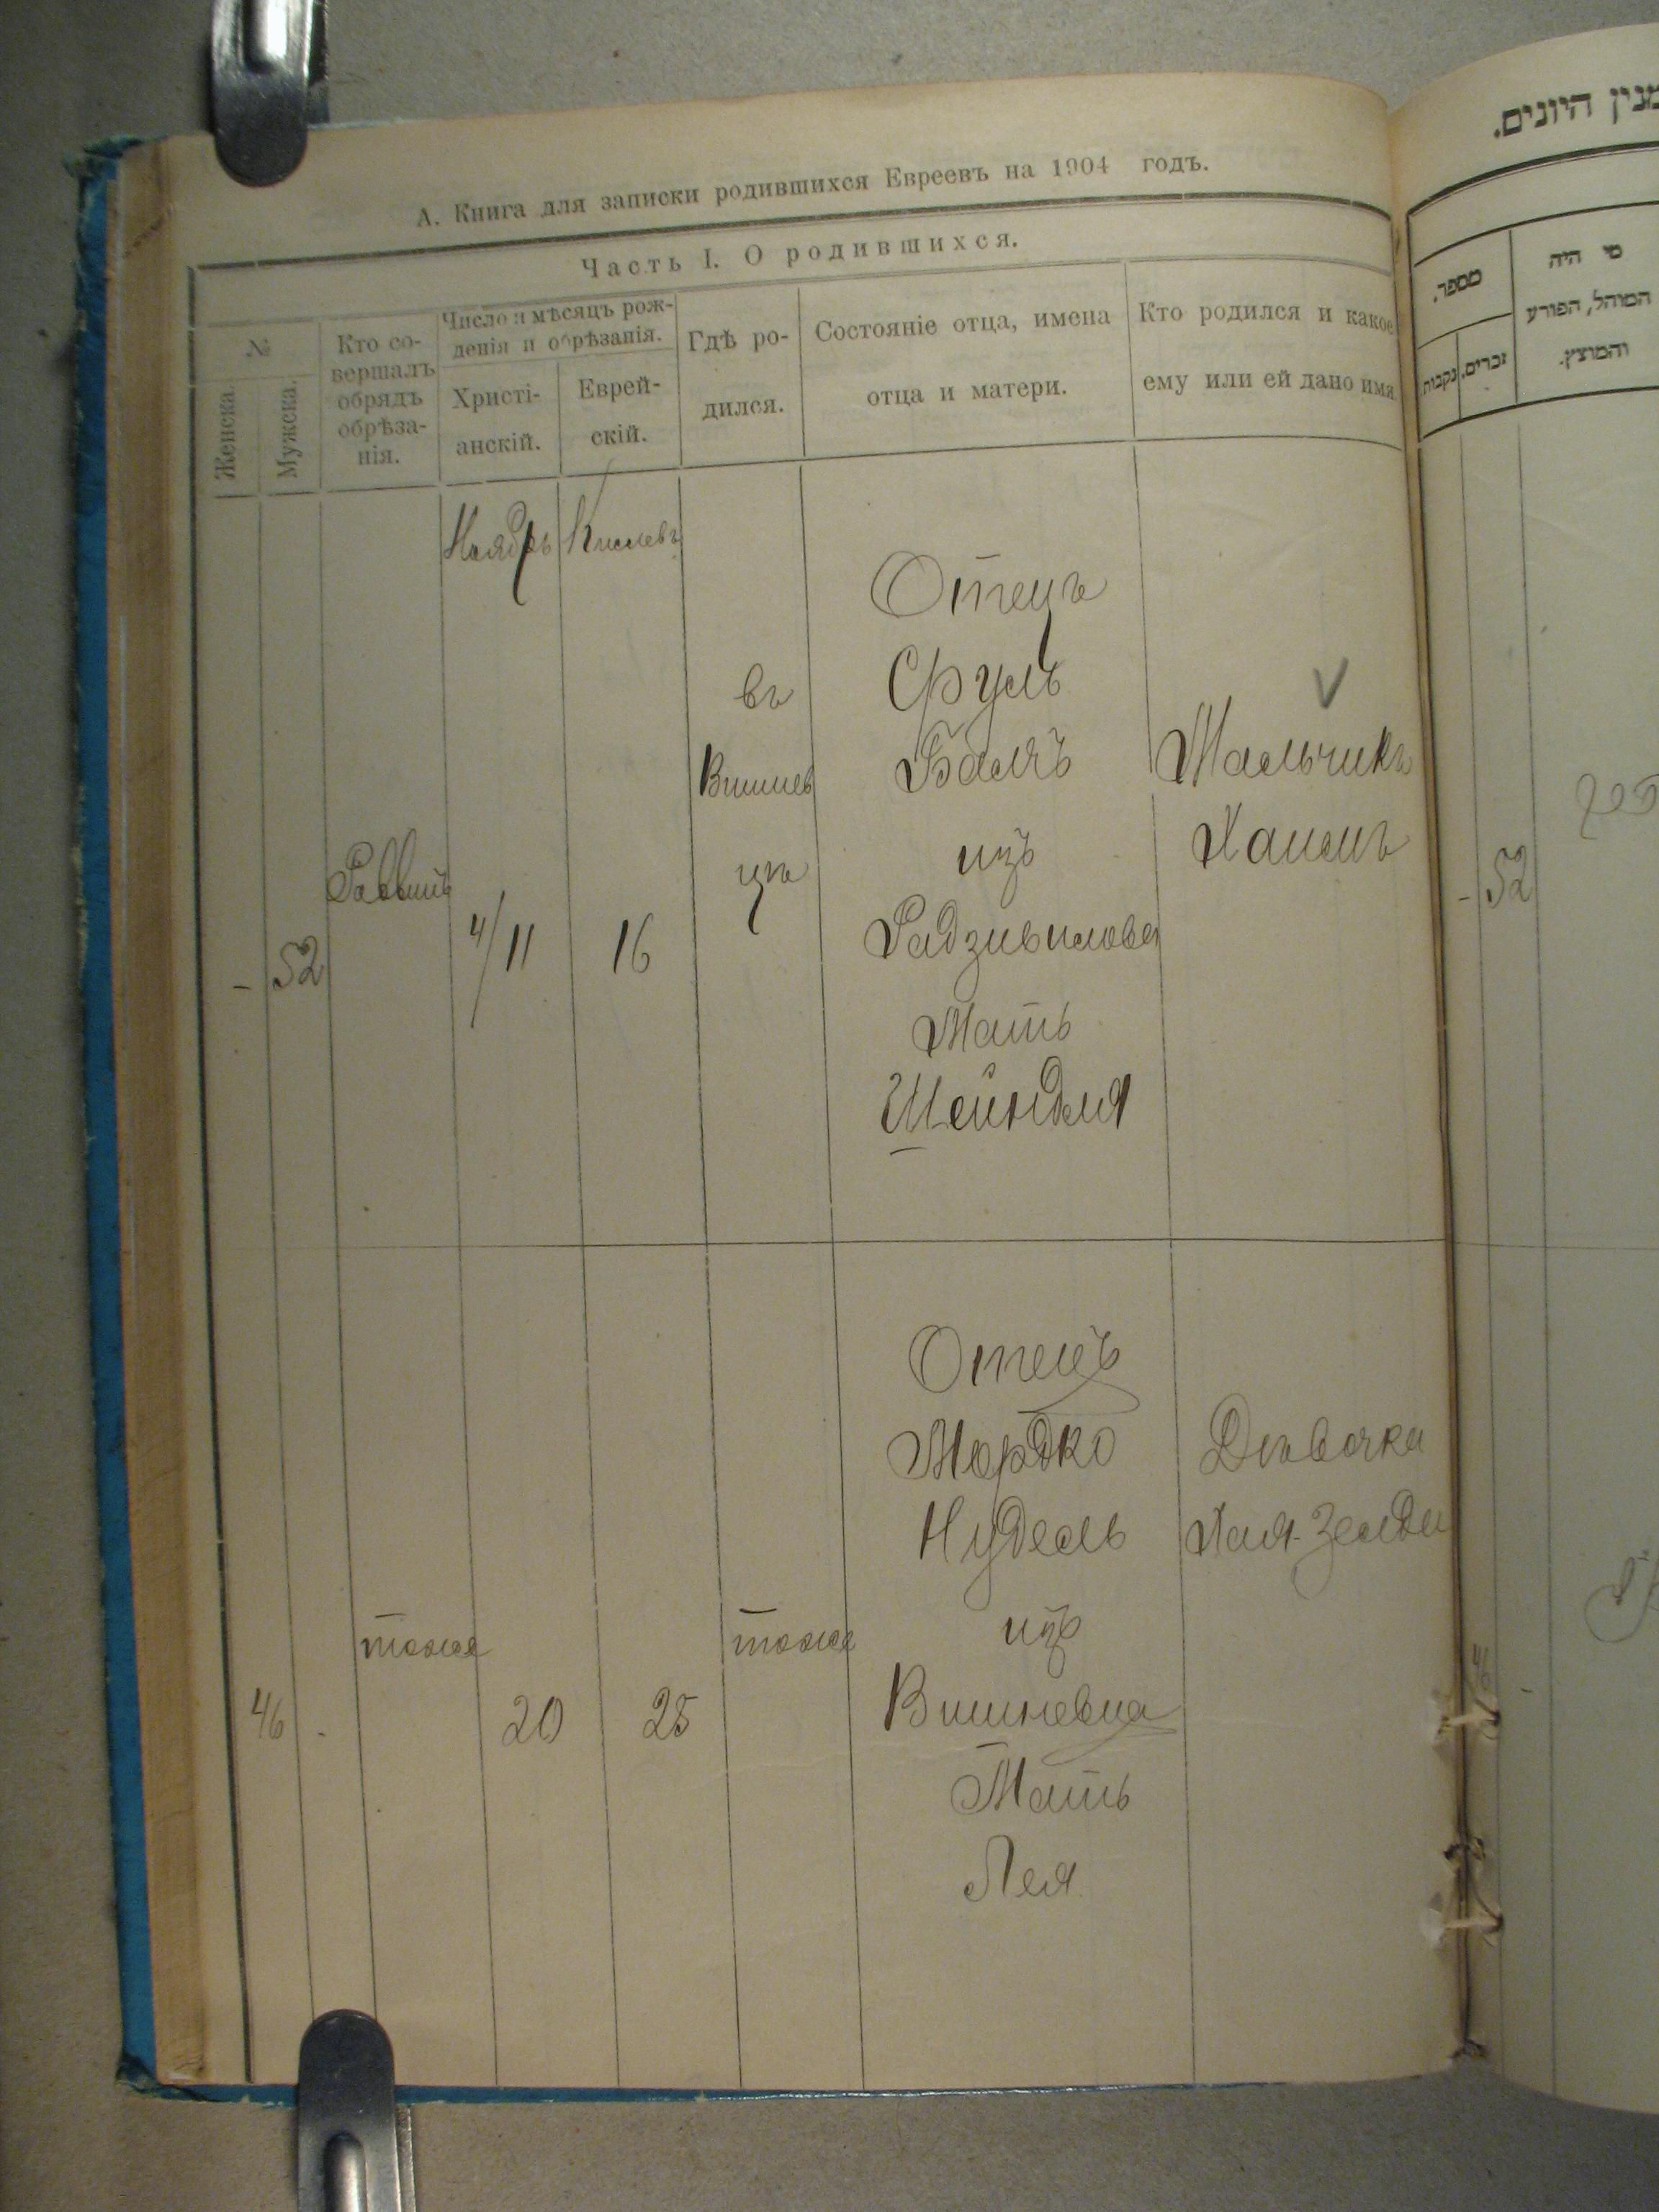 А. Книга для записки родившихся Евреевъ на 1904 годъ.
Часть I. О родившихся.
№
Женска.
Мужска.
Кто со-
вершалъ
обрядъ
обрѣза-
нія.
Число и мѣсяцъ рож-
денія и обрѣзанія.
Христі-
анскій.
Еврей-
скій.
Гдѣ ро-
дился.
Состояніе отца, имена
отца и матери.
Кто родился и какое
ему или ей дано имя.
Ноябрь
Кислевъ
- 52
Раввинъ
4/11
16
въ
Вишнев
цѣ
Отецъ
Сруль
из
Радзивилова
Мать
Шейндля
Мальчикъ
46 -
тоже
20
25
тоже
Отецъ
Мордко
Нудель
изъ
Вишневца
Мать
Лея
Дѣвочка
Хая-Зельда
מנין היונים.
מספר.
נקבות
זכרים.
מי היה
המוהל, הפורע
והמוצץ.
- 52
46 -